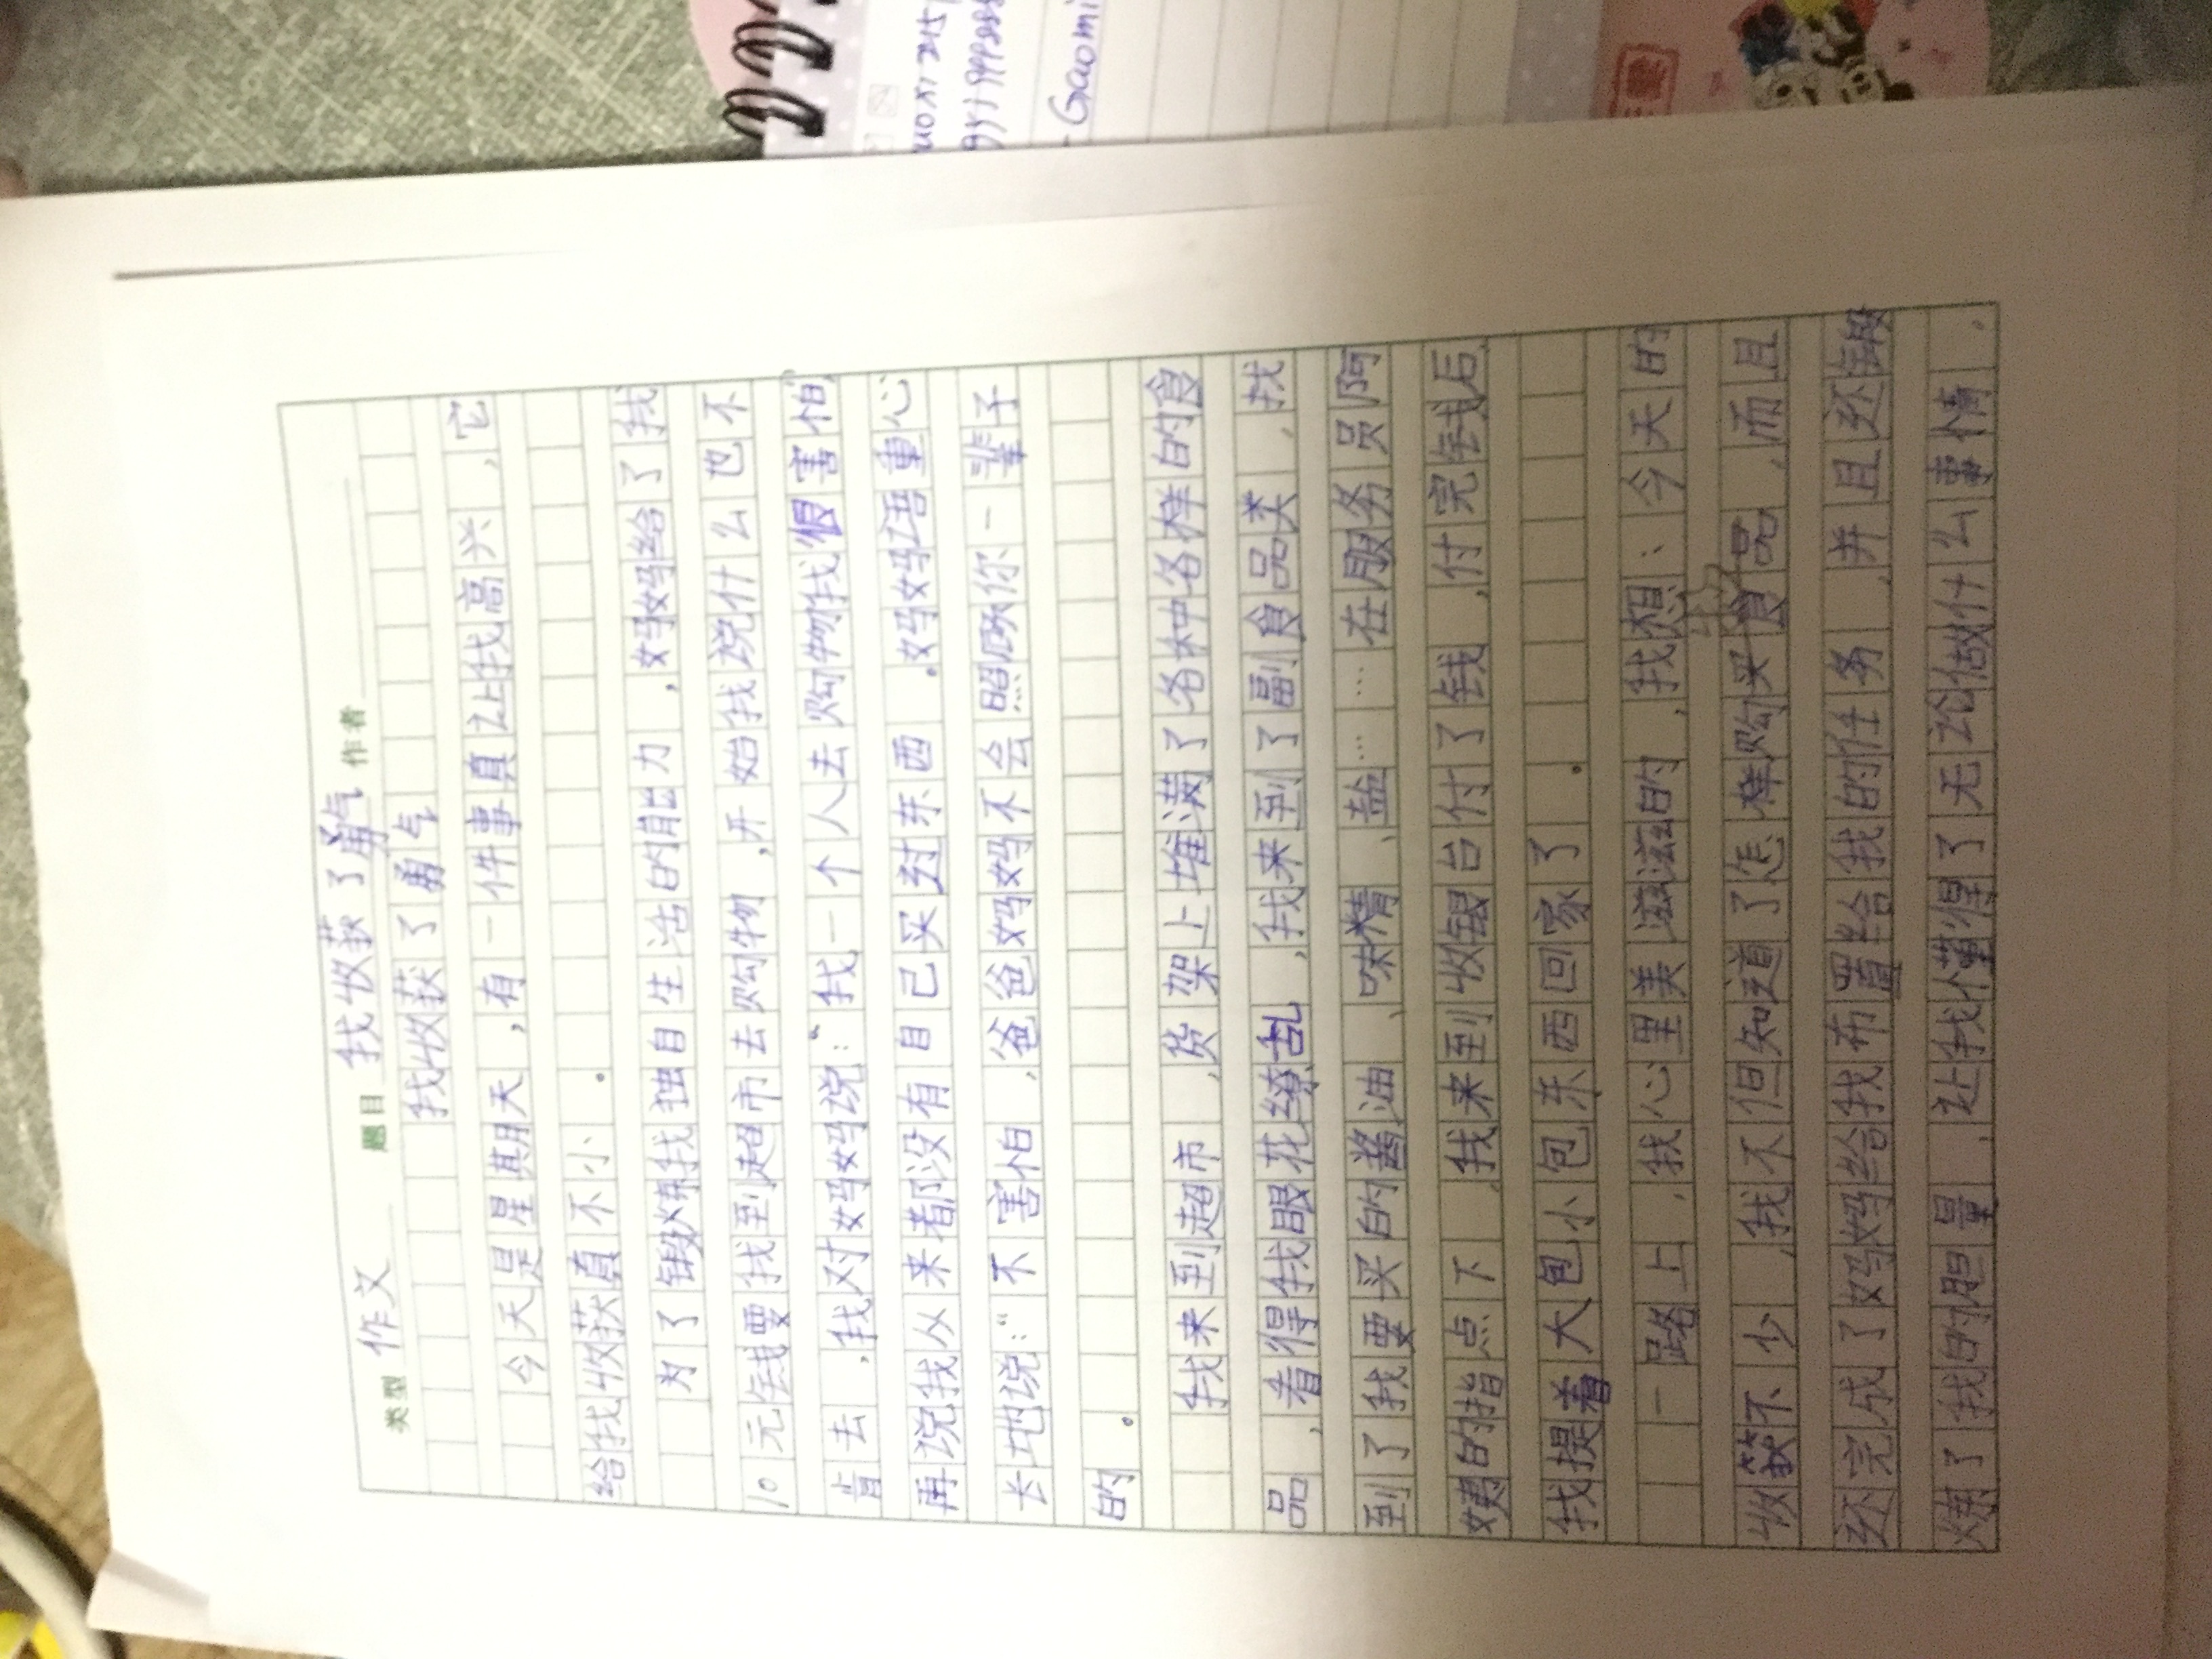 类型 作文 题目 我收获了勇气 作者
我收获了勇气
今天是星期天，有一件事真让我高兴，它
给我收获真不小。
为了锻炼我独自生活的能力，妈妈给了我
10元钱要我到超市去购物，开始我说什么也不
肯去，我对妈妈说：“我一个人去购物我很害怕，
再说我从来都没有自己买过东西。妈妈语重心
长地说：“不害怕，爸爸妈妈不会照顾你一辈子
的。
我来到超市，货架上堆满了各种各样的食
品，看得我眼花缭乱，我来到了副食品类，找
到了我要买的酱油、味精、盐……在服务员阿
姨的指点下，我来到收银台付了钱，付完钱后
我提着大包小包东西回家了。
一路上，我心里美滋滋的，我想：今天的
收获不少，我不但知道了怎样购买食品，而且
还完成了妈妈给我布置给我的任务，并且还锻
炼了我的胆量，让我懂得了无论做什么事情，
Gaomi